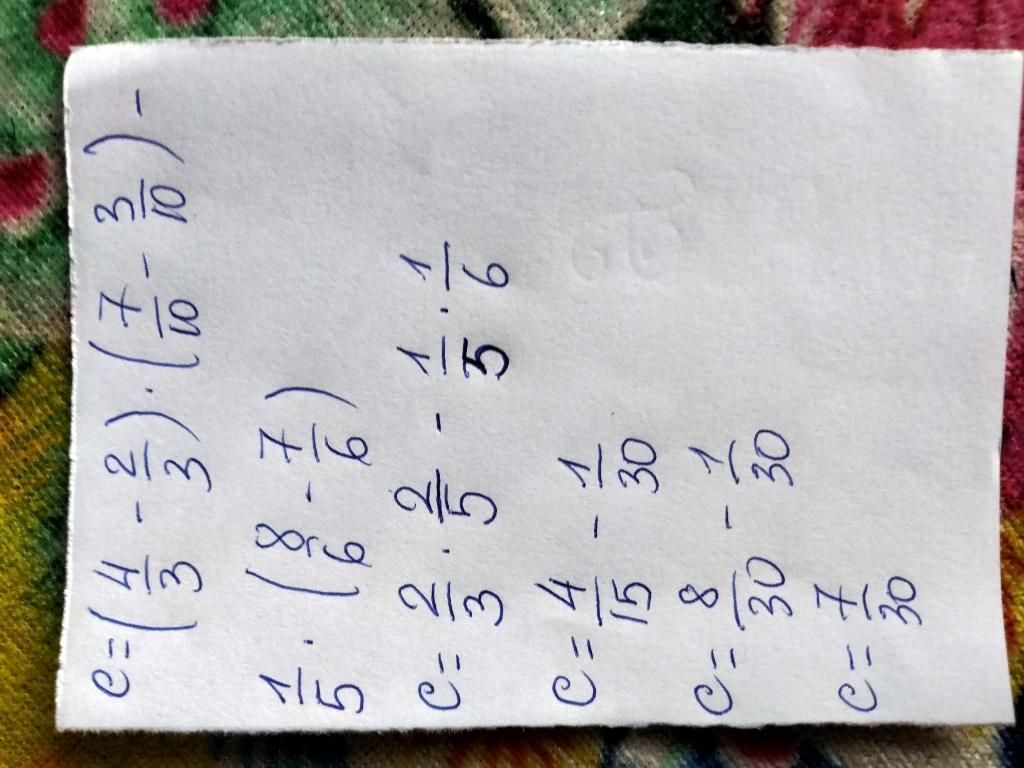 e=(4/3 - 2/3)·(7/10 - 3/10) -
1/5 · (8/6 - 7/6)
e= 2/3 · 2/5 - 1/5 · 1/6
e= 4/15 - 1/30
e= 8/30 - 1/30
e= 7/30